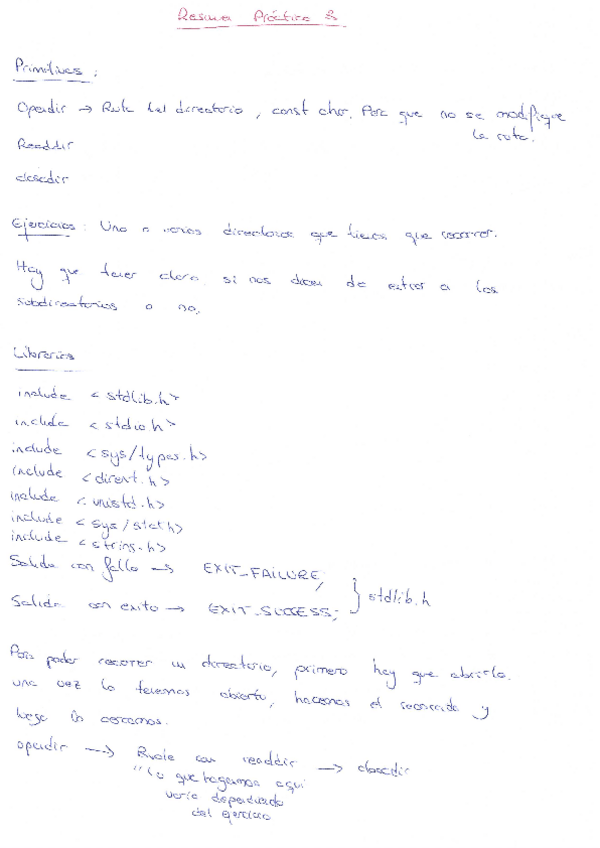 Resumen Práctica 3
Primitivas :
Opendir → Ruta del directorio, const char. Para que no se modifique
la ruta.
Readdir
closedir
Ejercicios : Uno o varios directorios que tienes que recorrer.
Hay que tener claro si nos dicen de entrar a los
subdirectorios o no.
Librerías
include <stdlib.h>
include <stdio.h>
include <sys/types.h>
include <dirent.h>
include <unistd.h>
include <sys/stat.h>
include <string.h>
Salida con fallo → EXIT_FAILURE;
} stdlib.h
Salida con exito → EXIT_SUCCESS;
Para poder recorrer un directorio, primero hay que abrirlo.
una vez lo tenemos abierto, hacemos el recorrido y
luego lo cerramos.
opendir → Bucle con readdir → closedir
"lo que hagamos aquí
varía dependiendo
del ejercicio